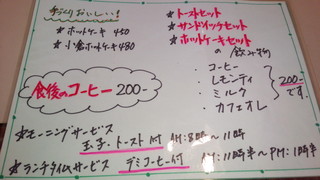 手づくりおいしい!
★ホットケーキ 450
★小倉ホットケーキ480
食後のコーヒー 200-
★トーストセット
★サンドイッチセット
★ホットケーキセット
の飲み物
・コーヒー
・レモンティ
・ミルク
・カフェオレ
200-
です。
★モーニングサービス
玉子・トースト付 AM:8時〜11時
★ランチタイムサービス デミコーヒー付 AM:11時半〜PM:1時半